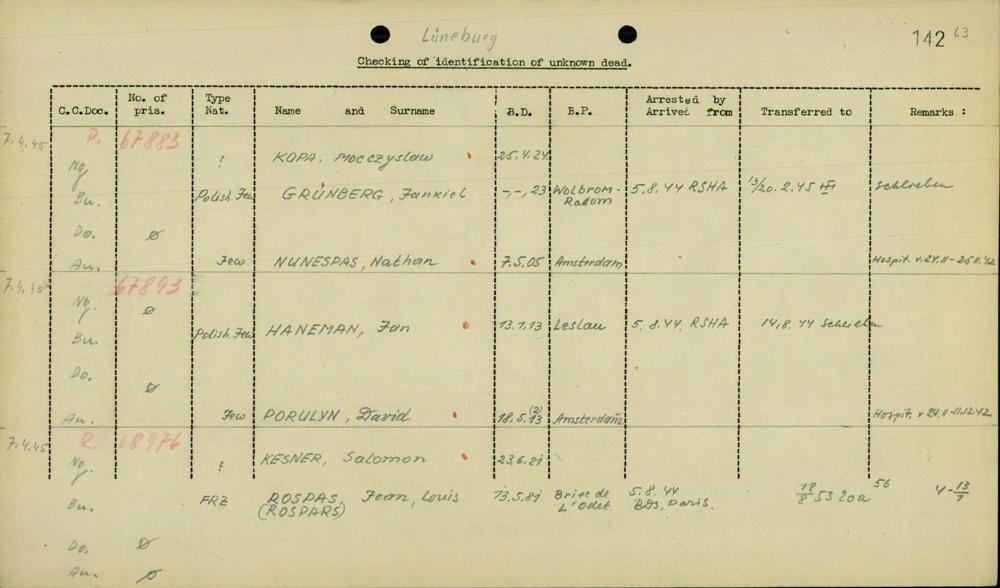 Lüneburg
142 63
Checking of identification of unknown dead.
C.C.Doc. No. of pris. Type Nat. Name and Surname B.D. B.P. Arrested by Arrived from Transferred to Remarks :
7.4.45 P. 67883
Ng. ? KOPA, Mocczyslaw 25.4.24
Bu. Polish Jew GRÜNBERG, Jankiel -,-,23 Wolbrom-Radom 5.8.44 RSHA 13/20.2.45 III Schlieben
Do. ø
Au. Jew NUNESPAS, Nathan 7.5.05 Amsterdam Hospit. v. 24.11-25.11.42
7.4.45 67893
Ng. ø
Bu. Polish Jew HANEMAN, Jan 13.1.13 Leslau 5.8.44 RSHA 14.8.44 Schlieben
Do. ø
Au. Jew PORULYN, David 18.5.(2)13 Amsterdam Hospit. v 24.11-11.12.42
7.4.45 R. 68976
Ng. ? KESNER, Salomon 23.6.21
Bu. FRZ ROSPAS, Jean, Louis 13.5.81 Briec de L'Odet 5.8.44 BDS, Paris. 18/8 53 20a 56 4-13/7
(ROSPARS)
Do. ø
Au. ø